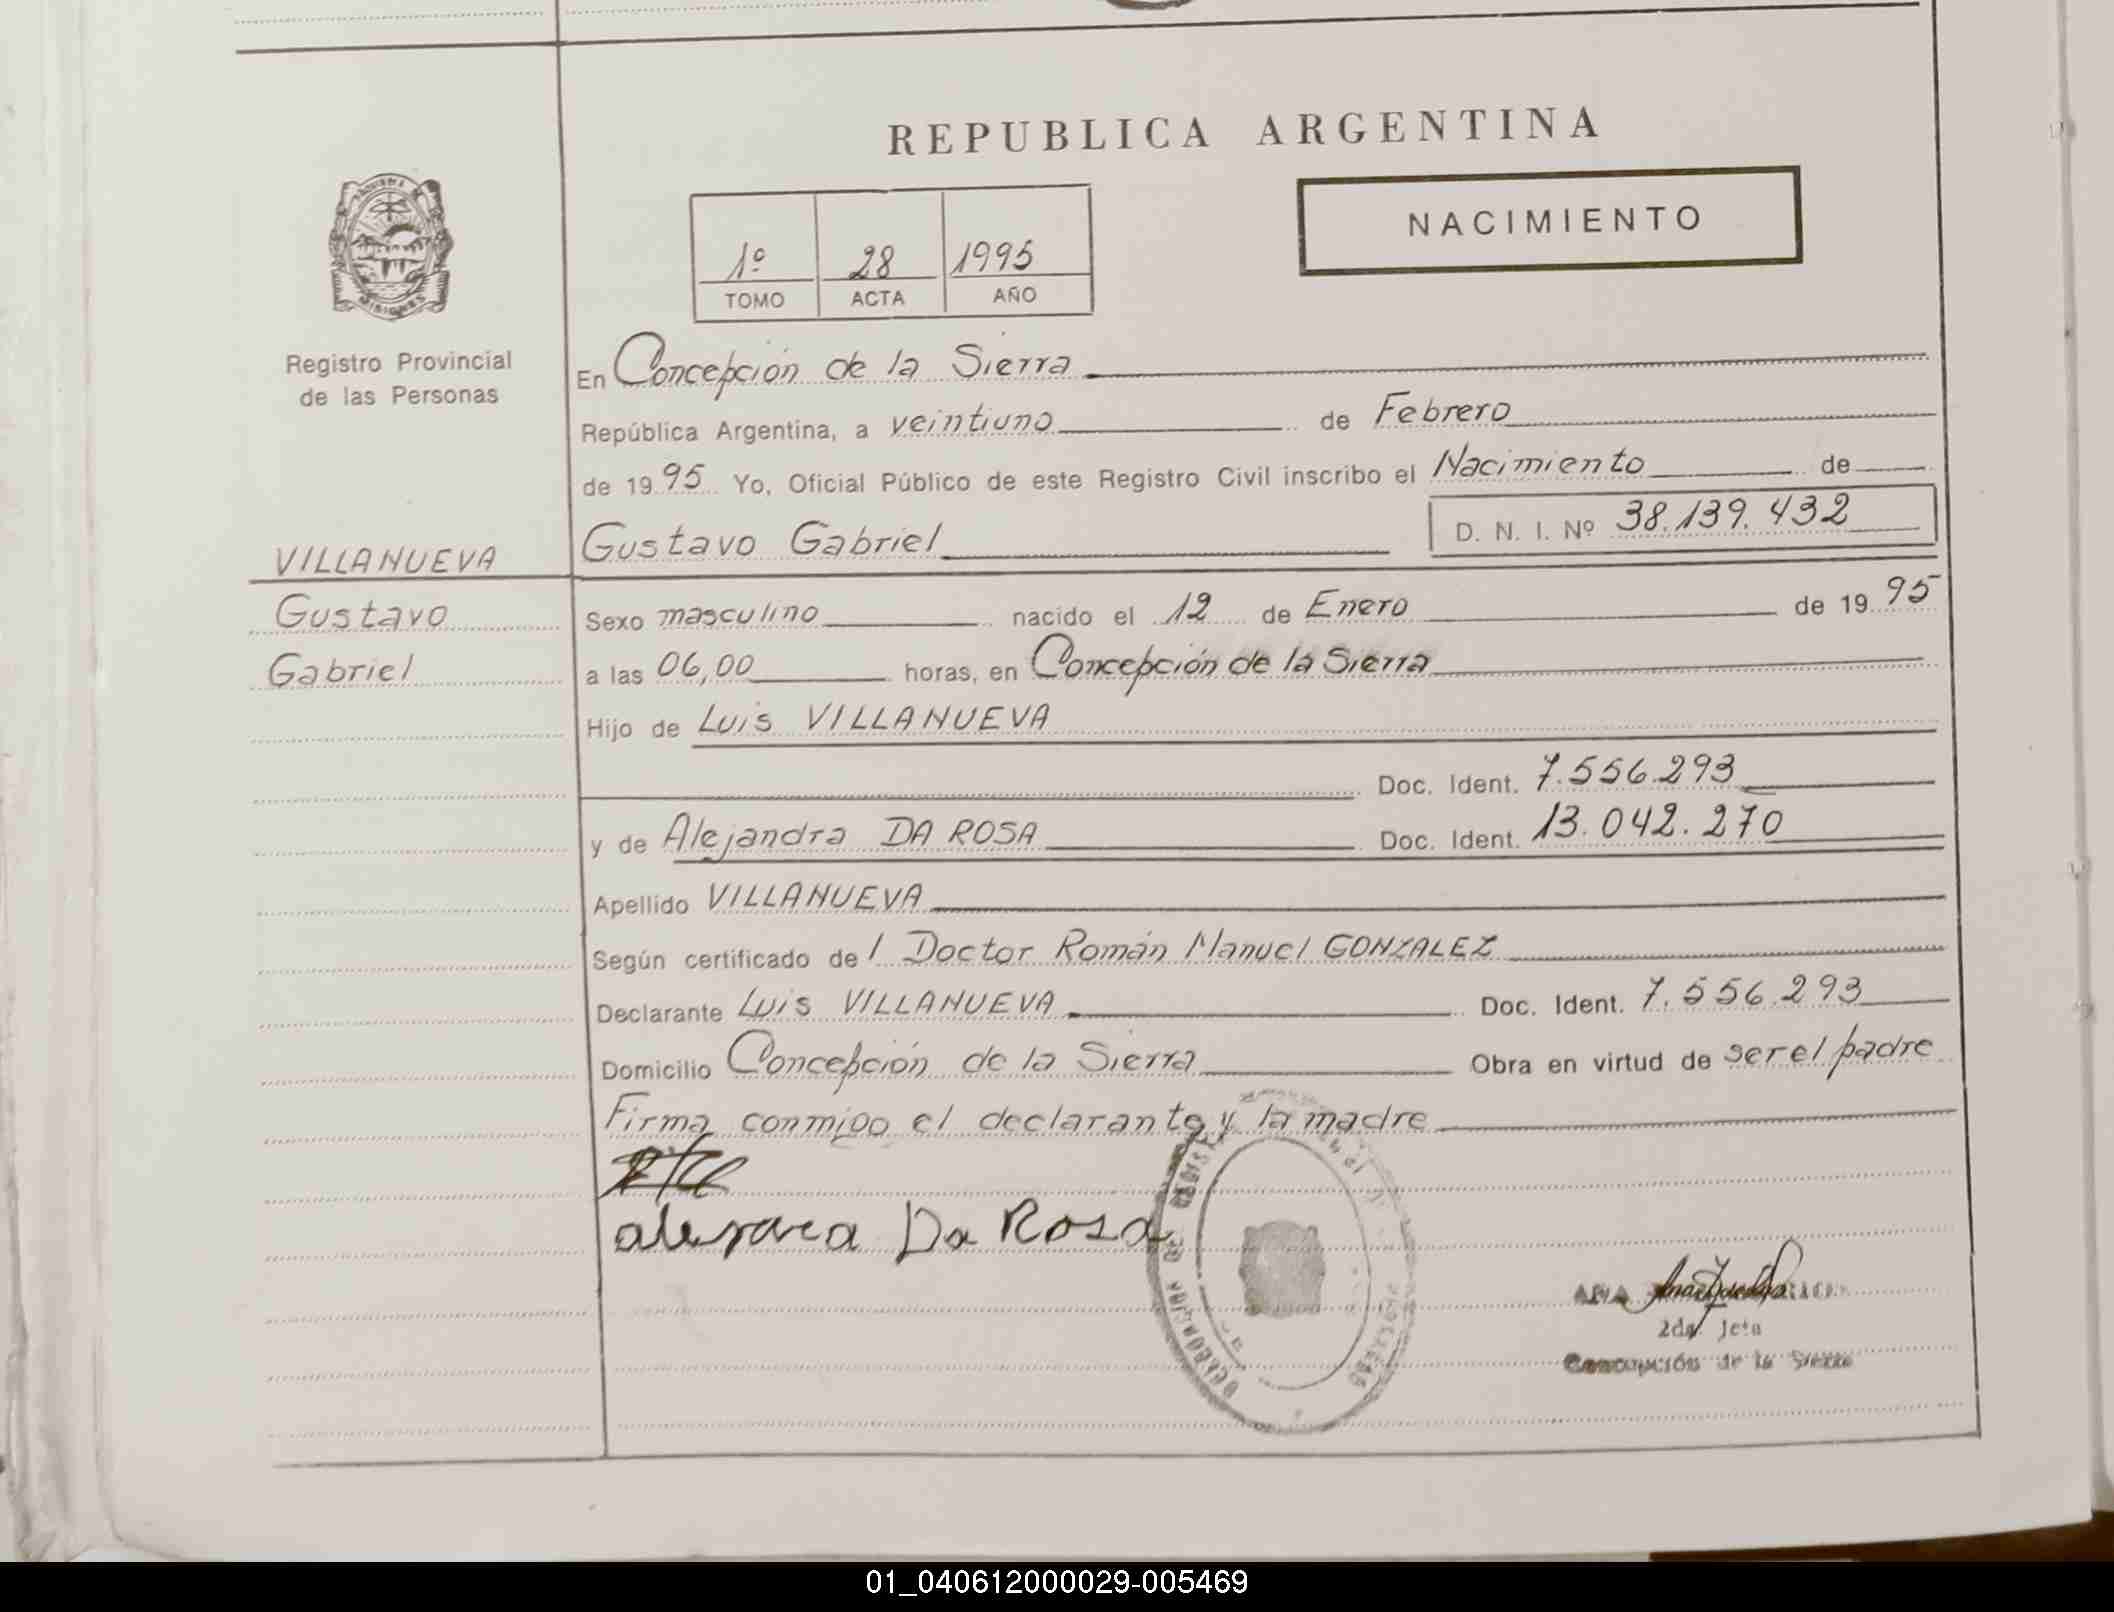 REPUBLICA ARGENTINA
NACIMIENTO
1º 28 1995
TOMO ACTA AÑO
MISIONES
Registro Provincial
de las Personas
En Concepción de la Sierra
República Argentina, a veintiuno de Febrero
de 1995 Yo, Oficial Público de este Registro Civil inscribo el Nacimiento de
D. N. I. Nº 38.139.432
VILLANUEVA Gustavo Gabriel
Gustavo
Gabriel
Sexo masculino nacido el 12 de Enero de 1995
a las 06,00 horas, en Concepción de la Sierra
Hijo de Luis VILLANUEVA
Doc. Ident. 7.556.293
y de Alejandra DA ROSA Doc. Ident. 13.042.270
Apellido VILLANUEVA
Según certificado de l Doctor Román Manuel GONZALEZ
Declarante Luis VILLANUEVA Doc. Ident. 7.556.293
Domicilio Concepción de la Sierra Obra en virtud de ser el padre
Firma conmigo el declarante y la madre
Da Rosa
ANA
2da Jefa
Concepción de la Sierra
01_040612000029-005469